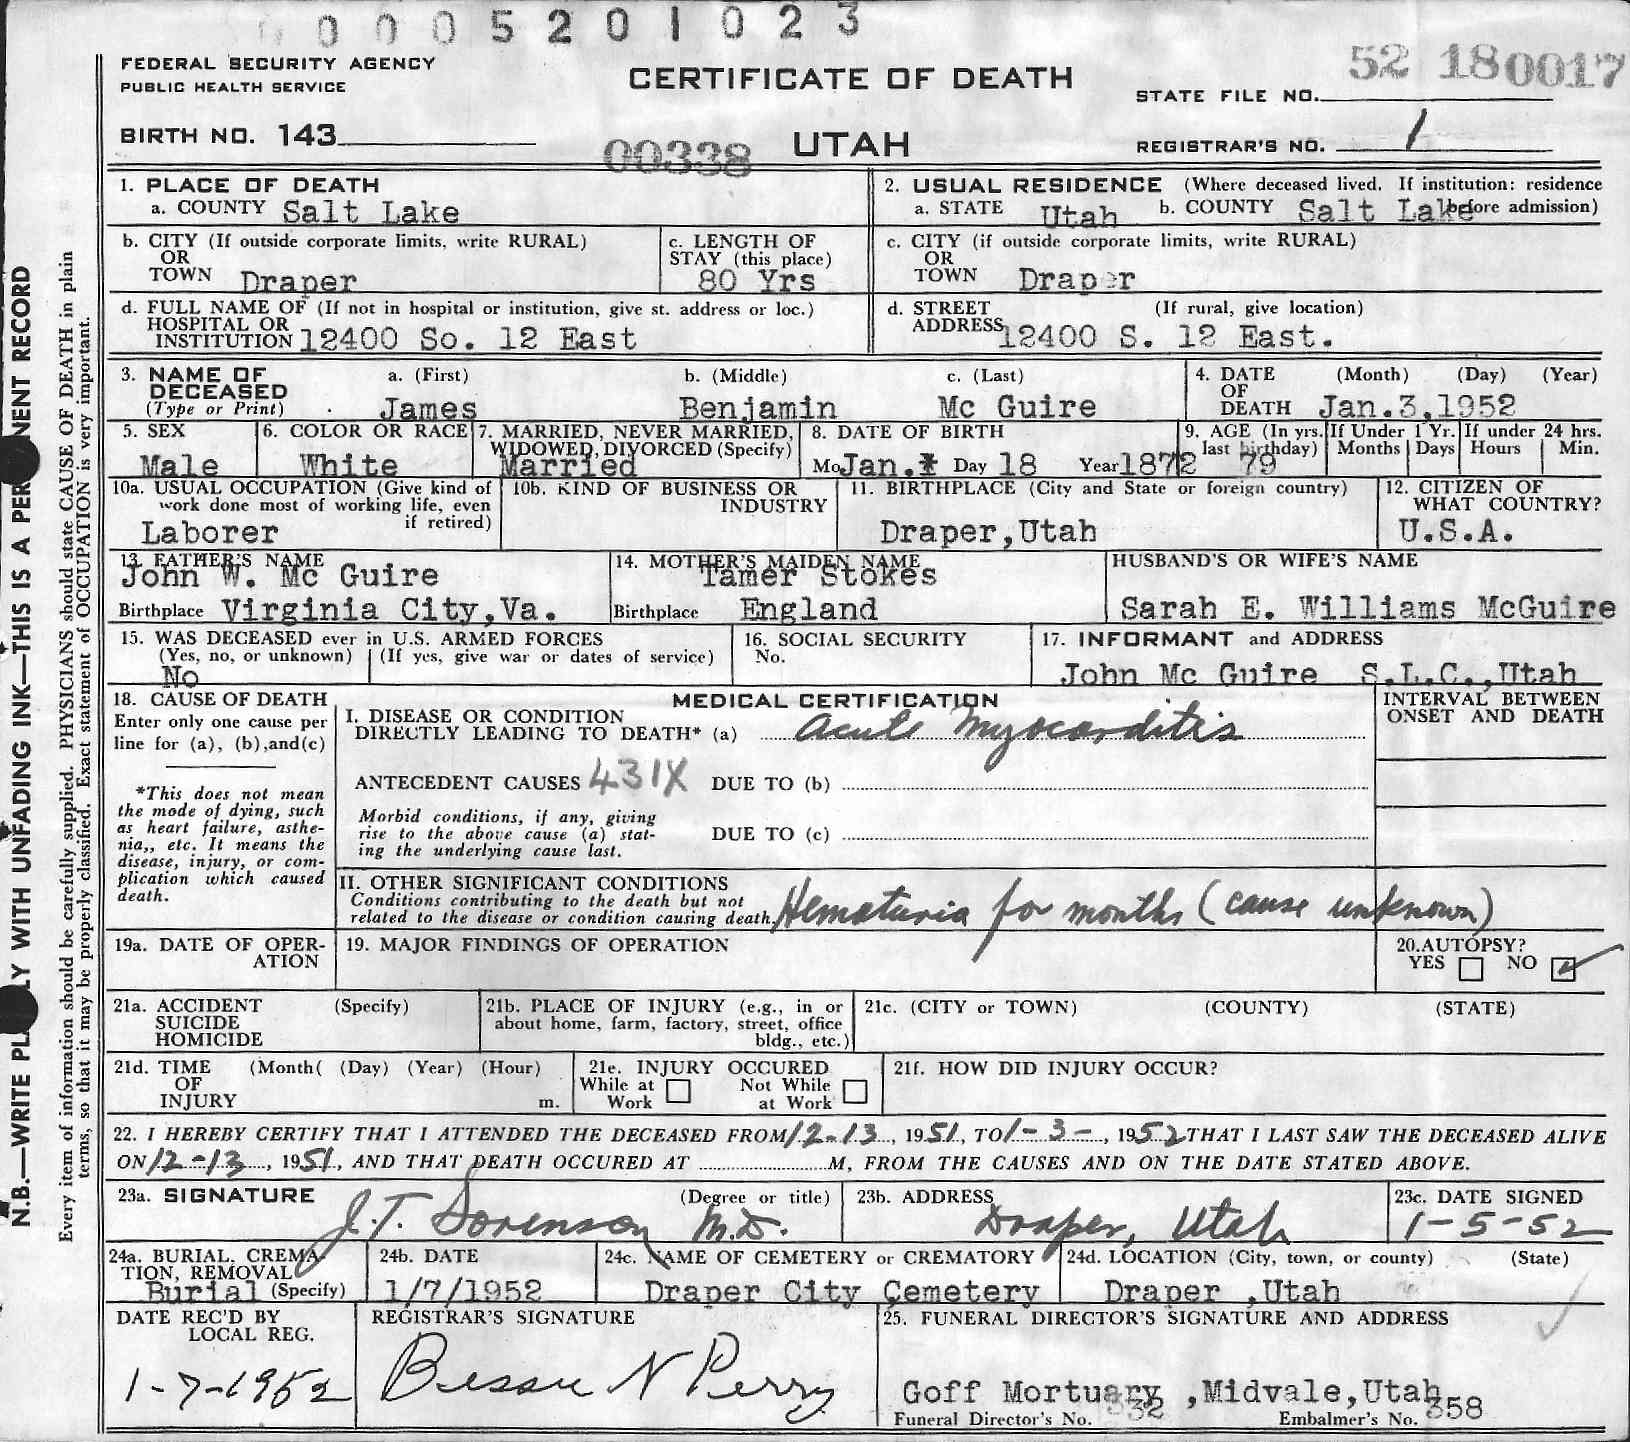 0005201023
FEDERAL SECURITY AGENCY
PUBLIC HEALTH SERVICE
CERTIFICATE OF DEATH
52 180017
STATE FILE NO.
BIRTH NO. 143
00338
UTAH
REGISTRAR'S NO. 1
N.B.—WRITE PLAINLY WITH UNFADING INK—THIS IS A PERMANENT RECORD
Every item of information should be carefully supplied. PHYSICIANS should state CAUSE OF DEATH in plain
terms, so that it may be properly classified. Exact statement of OCCUPATION is very important.
1. PLACE OF DEATH
a. COUNTY Salt Lake
2. USUAL RESIDENCE (Where deceased lived. If institution: residence
a. STATE Utah b. COUNTY Salt Lake before admission)
b. CITY (If outside corporate limits, write RURAL)
OR
TOWN Draper
c. LENGTH OF
STAY (this place)
80 Yrs
c. CITY (if outside corporate limits, write RURAL)
OR
TOWN Draper
d. FULL NAME OF (If not in hospital or institution, give st. address or loc.)
HOSPITAL OR
INSTITUTION 12400 So. 12 East
d. STREET (If rural, give location)
ADDRESS 12400 S. 12 East.
3. NAME OF a. (First) b. (Middle) c. (Last)
DECEASED
(Type or Print) James Benjamin Mc Guire
4. DATE (Month) (Day) (Year)
OF
DEATH Jan.3,1952
5. SEX
Male
6. COLOR OR RACE
White
7. MARRIED, NEVER MARRIED,
WIDOWED, DIVORCED (Specify)
Married
8. DATE OF BIRTH
Mo Jan. Day 18 Year 1872
9. AGE (In yrs.
last birthday)
79
If Under 1 Yr.
Months Days
If under 24 hrs.
Hours Min.
10a. USUAL OCCUPATION (Give kind of
work done most of working life, even
if retired)
Laborer
10b. KIND OF BUSINESS OR
INDUSTRY
11. BIRTHPLACE (City and State or foreign country)
Draper,Utah
12. CITIZEN OF
WHAT COUNTRY?
U.S.A.
13. FATHER'S NAME
John W. Mc Guire
Birthplace Virginia City,Va.
14. MOTHER'S MAIDEN NAME
Tamer Stokes
Birthplace England
HUSBAND'S OR WIFE'S NAME
Sarah E. Williams McGuire
15. WAS DECEASED ever in U.S. ARMED FORCES
(Yes, no, or unknown) (If yes, give war or dates of service)
No
16. SOCIAL SECURITY
No.
17. INFORMANT and ADDRESS
John Mc Guire S.L.C.,Utah
18. CAUSE OF DEATH
Enter only one cause per
line for (a), (b),and(c)
*This does not mean
the mode of dying, such
as heart failure, asthe-
nia,, etc. It means the
disease, injury, or com-
plication which caused
death.
MEDICAL CERTIFICATION
I. DISEASE OR CONDITION
DIRECTLY LEADING TO DEATH* (a) Acute Myocarditis
ANTECEDENT CAUSES 431X DUE TO (b)
Morbid conditions, if any, giving
rise to the above cause (a) stat-
ing the underlying cause last.
DUE TO (c)
INTERVAL BETWEEN
ONSET AND DEATH
II. OTHER SIGNIFICANT CONDITIONS
Conditions contributing to the death but not
related to the disease or condition causing death.
Hematuria for months (cause unknown)
19a. DATE OF OPER-
ATION
19. MAJOR FINDINGS OF OPERATION
20.AUTOPSY?
YES NO
21a. ACCIDENT (Specify)
SUICIDE
HOMICIDE
21b. PLACE OF INJURY (e.g., in or
about home, farm, factory, street, office
bldg., etc.)
21c. (CITY or TOWN) (COUNTY) (STATE)
21d. TIME (Month( (Day) (Year) (Hour)
OF
INJURY m.
21e. INJURY OCCURED
While at Not While
Work at Work
21f. HOW DID INJURY OCCUR?
22. I HEREBY CERTIFY THAT I ATTENDED THE DECEASED FROM 12-13, 1951, TO 1-3-, 1952 THAT I LAST SAW THE DECEASED ALIVE
ON 12-13, 1951, AND THAT DEATH OCCURED AT M, FROM THE CAUSES AND ON THE DATE STATED ABOVE.
23a. SIGNATURE (Degree or title)
J.T. Sorenson M.D.
23b. ADDRESS
Draper, Utah
23c. DATE SIGNED
1-5-52
24a. BURIAL, CREMA-
TION, REMOVAL
Burial (Specify)
24b. DATE
1/7/1952
24c. NAME OF CEMETERY or CREMATORY
Draper City Cemetery
24d. LOCATION (City, town, or county) (State)
Draper ,Utah
DATE REC'D BY
LOCAL REG.
1-7-1952
REGISTRAR'S SIGNATURE
Bessie N Perry
25. FUNERAL DIRECTOR'S SIGNATURE AND ADDRESS
Goff Mortuary ,Midvale,Utah
Funeral Director's No. 332 Embalmer's No. 358